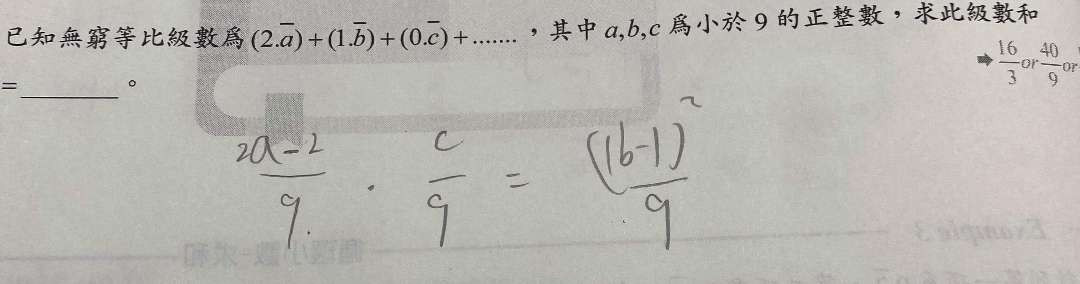 已知無窮等比級數爲 (2.a̅)+(1.b̅)+(0.c̅)+.......，其中 a,b,c 爲小於 9 的正整數，求此級數和
=________。
➡ 16/3 or 40/9 or
(2a-2)/9 · c/9 = ((1b-1)/9)²
Example 3